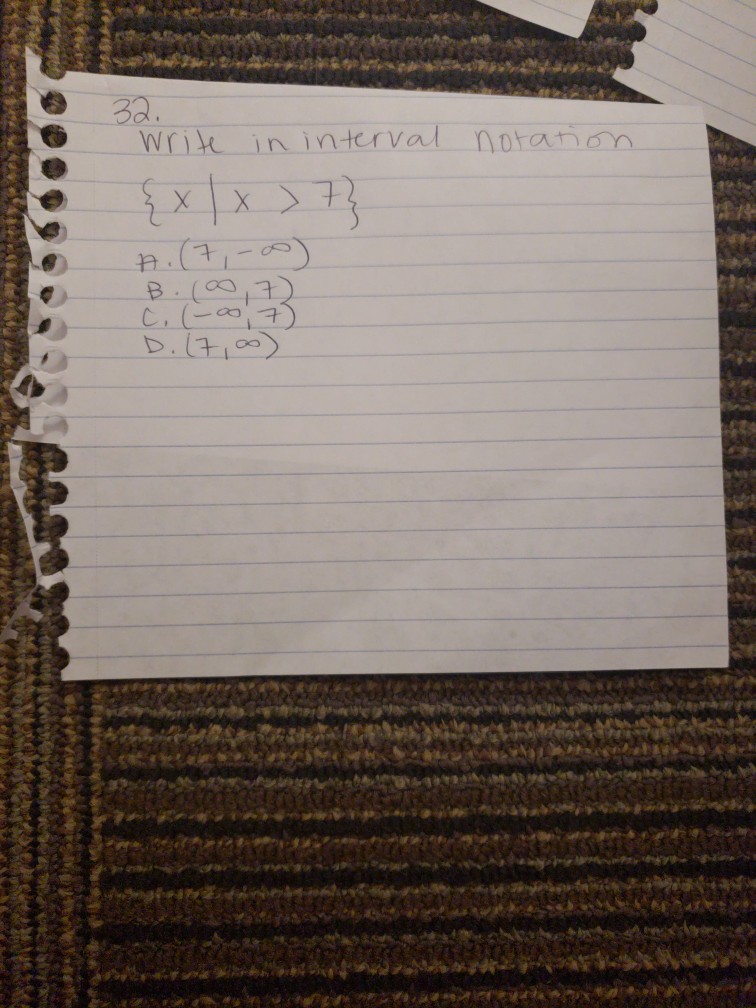 32.
Write in interval notation
{x | x > 7}
A. (7, -∞)
B. (∞, 7)
C. (-∞, 7)
D. (7, ∞)